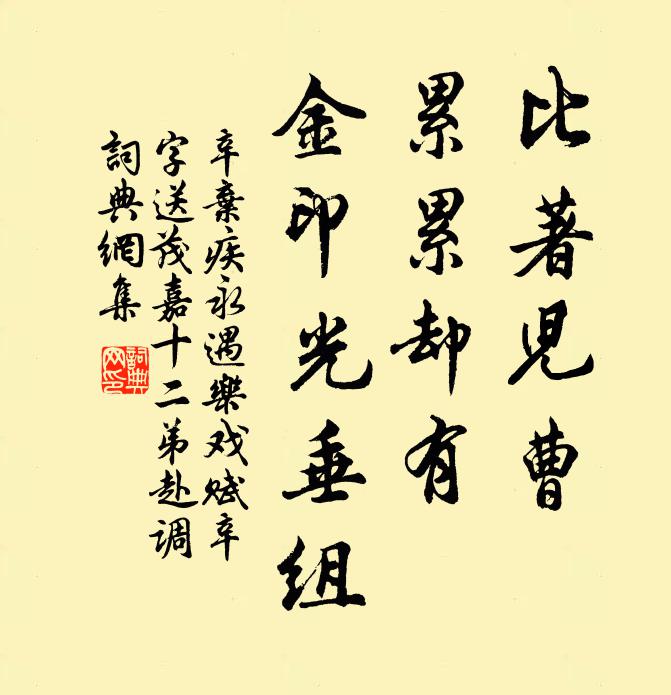 比著児曹
累累却有
金印光垂組
辛棄疾永遇樂戏赋辛
字送茂嘉十二弟赴调
詞典網集
詞典网印